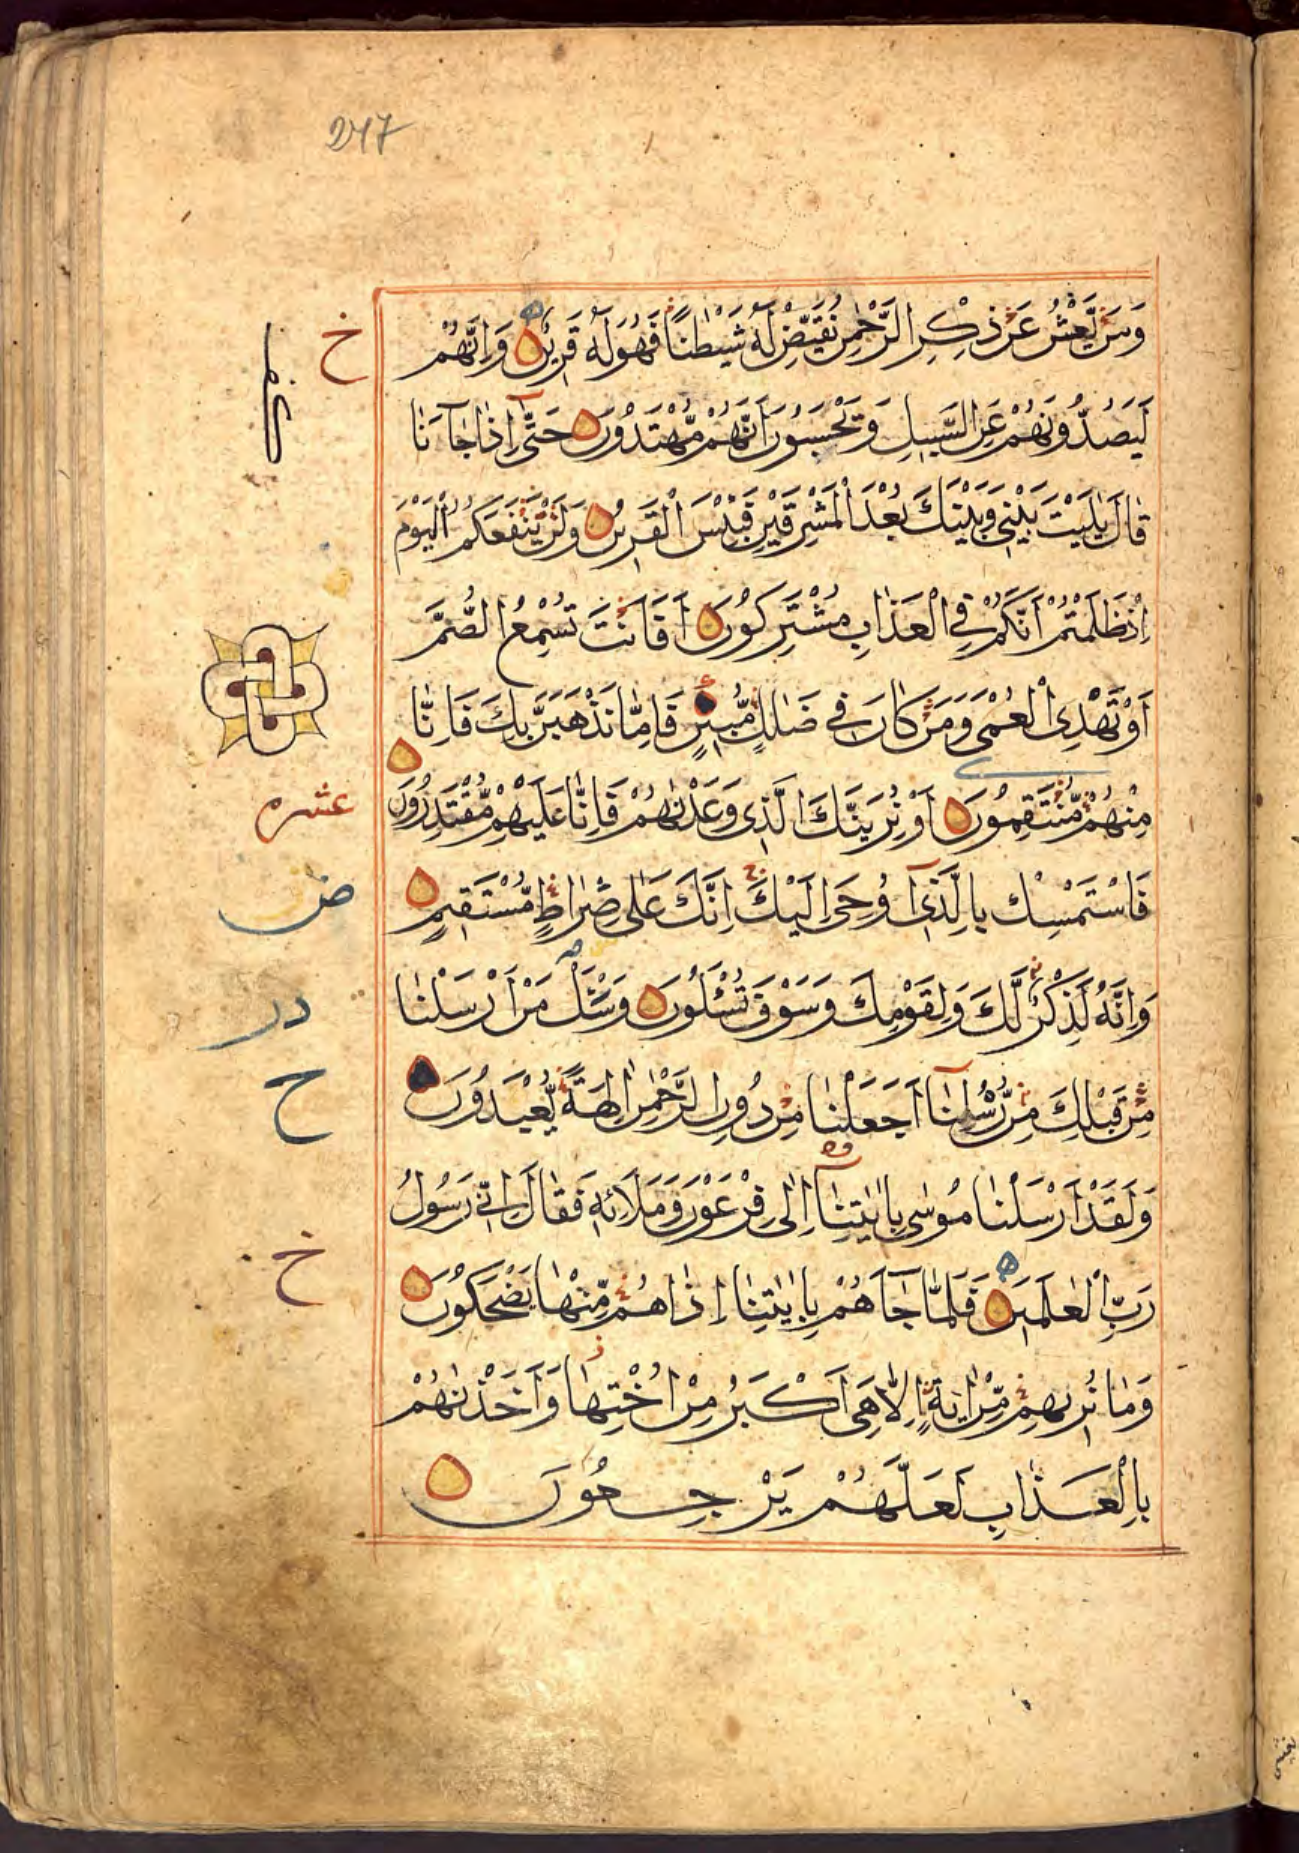 247
وَمَنْ يَّعْشُ عَنْ ذِكْرِ الرَّحْمٰنِ نُقَيِّضْ لَهُ شَيْطٰنًا فَهُوَ لَهُ قَرِيْنٌ وَاِنَّهُمْ
لَيَصُدُّوْنَهُمْ عَنِ السَّبِيْلِ وَيَحْسَبُوْنَ اَنَّهُمْ مُّهْتَدُوْنَ حَتّٰى اِذَا جَآءَنَا
قَالَ يٰلَيْتَ بَيْنِيْ وَبَيْنَكَ بُعْدَ الْمَشْرِقَيْنِ فَبِئْسَ الْقَرِيْنُ وَلَنْ يَّنْفَعَكُمُ الْيَوْمَ
اِذْ ظَلَمْتُمْ اَنَّكُمْ فِي الْعَذَابِ مُشْتَرِكُوْنَ اَفَاَنْتَ تُسْمِعُ الصُّمَّ
اَوْ تَهْدِي الْعُمْيَ وَمَنْ كَانَ فِيْ ضَلٰلٍ مُّبِيْنٍ فَاِمَّا نَذْهَبَنَّ بِكَ فَاِنَّا
مِنْهُمْ مُّنْتَقِمُوْنَ اَوْ نُرِيَنَّكَ الَّذِيْ وَعَدْنٰهُمْ فَاِنَّا عَلَيْهِمْ مُّقْتَدِرُوْنَ
فَاسْتَمْسِكْ بِالَّذِيْٓ اُوْحِيَ اِلَيْكَ اِنَّكَ عَلٰى صِرَاطٍ مُّسْتَقِيْمٍ
وَاِنَّهُ لَذِكْرٌ لَّكَ وَلِقَوْمِكَ وَسَوْفَ تُسْئَلُوْنَ وَسْئَلْ مَنْ اَرْسَلْنَا
مِنْ قَبْلِكَ مِنْ رُّسُلِنَآ اَجَعَلْنَا مِنْ دُوْنِ الرَّحْمٰنِ اٰلِهَةً يُّعْبَدُوْنَ
وَلَقَدْ اَرْسَلْنَا مُوْسٰى بِاٰيٰتِنَآ اِلٰى فِرْعَوْنَ وَمَلَاۡئِهٖ فَقَالَ اِنِّيْ رَسُوْلُ
رَبِّ الْعٰلَمِيْنَ فَلَمَّا جَآءَهُمْ بِاٰيٰتِنَا اِذَا هُمْ مِّنْهَا يَضْحَكُوْنَ
وَمَا نُرِيْهِمْ مِّنْ اٰيَةٍ اِلَّا هِيَ اَكْبَرُ مِنْ اُخْتِهَا وَاَخَذْنٰهُمْ
بِالْعَذَابِ لَعَلَّهُمْ يَرْجِعُوْنَ
خ
عشره
ض
در
ح
خ